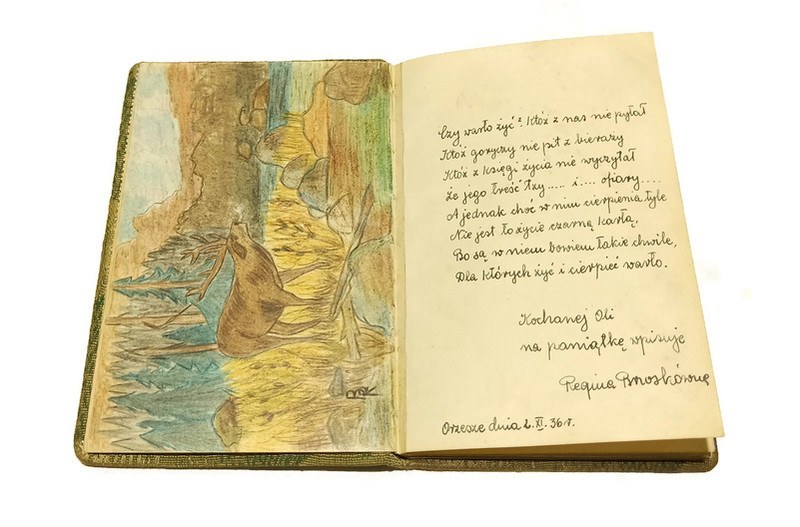 Czy warto żyć? Któż z nas nie pytał
Któż goryczy nie pił z bierazy
Któż z księgi życia nie wyczytał
Że jego treść łzy..... i.... ofiary.....
A jednak choć w nim cierpienia tyle
Nie jest to życie czarną kartą,
Bo są w niem bowiem takie chwile,
Dla których żyć i cierpieć warto.
Kochanej Oli
na pamiątkę wpisuje
Regina
Orzesze dnia 2. XI. 36 r.